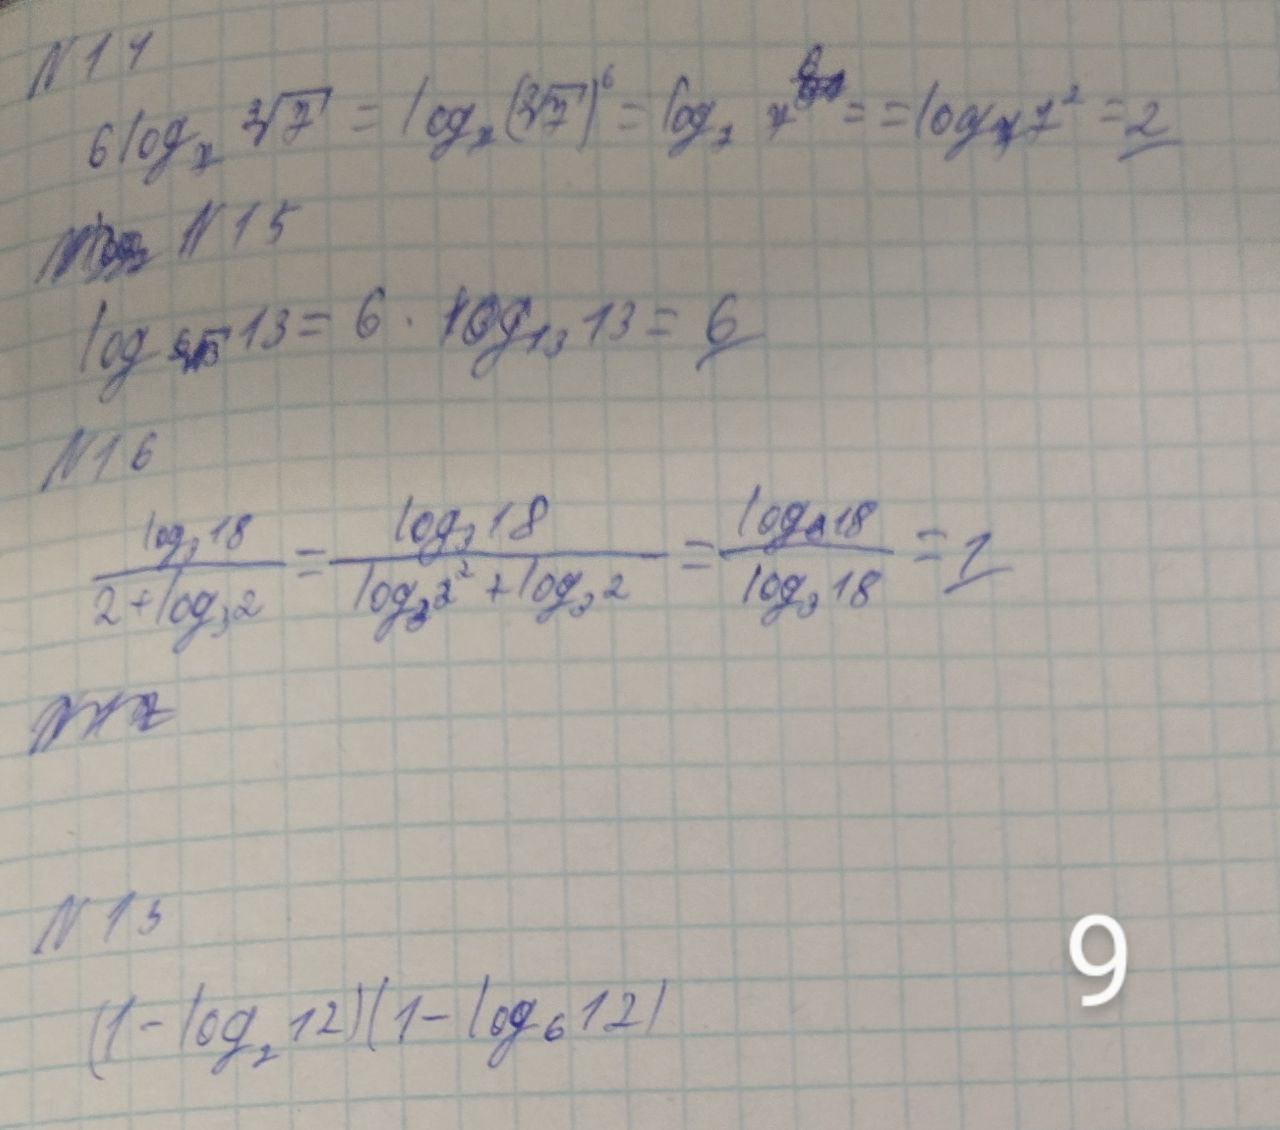 N14
6log₇ ∛7 = log₇(∛7)⁶ = log₇ 7 = = log₇7² = 2
N15
log 13 = 6 · log₁₃13 = 6
N16
log₃18 / 2 + log₃2 = log₃18 / log₃3² + log₃2 = log₃18 / log₃18 = 1
N13
(1 - log₂12)(1 - log₆12)
9